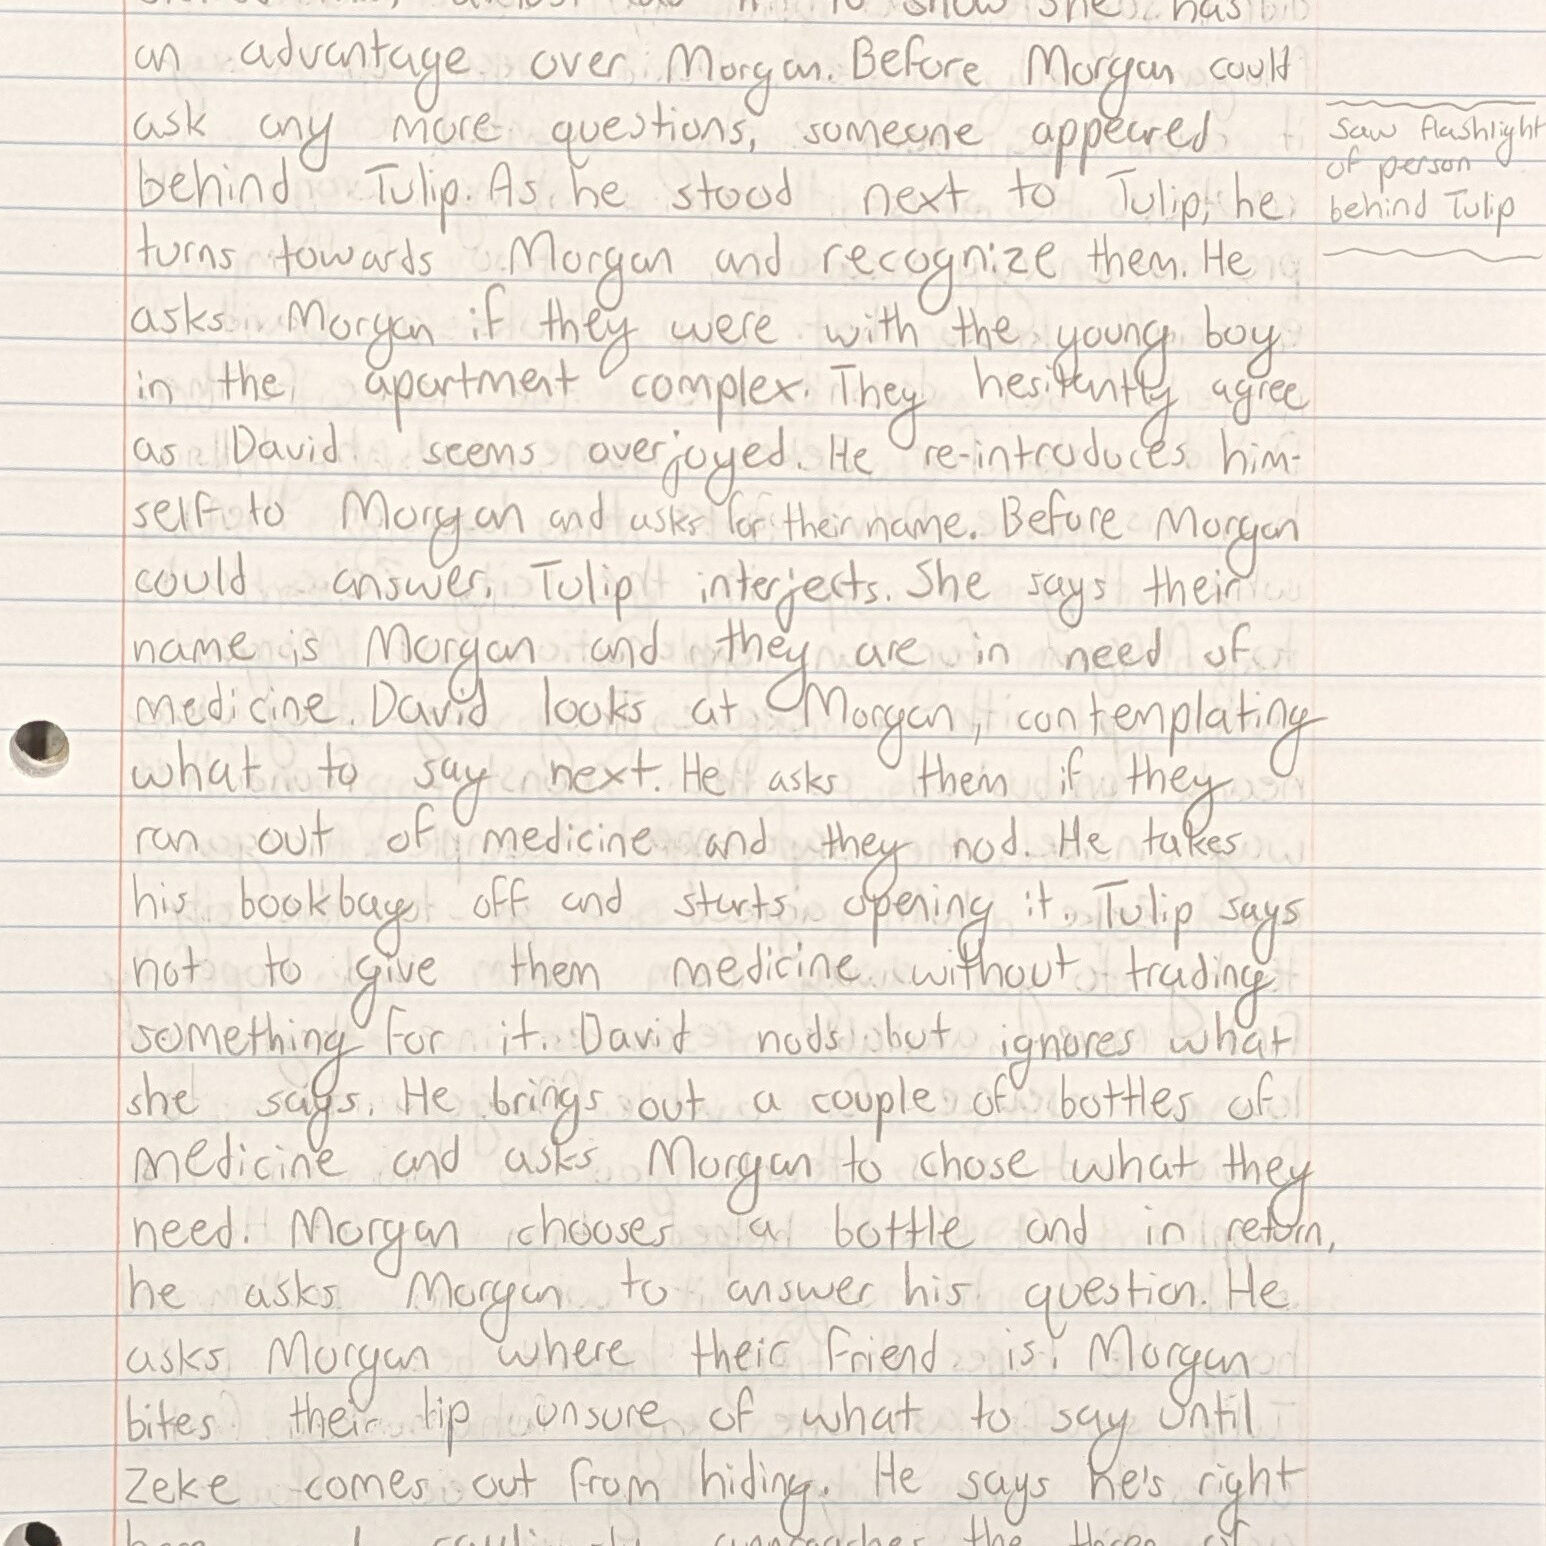 to show she has
an advantage over Morgan. Before Morgan could
ask any more questions, someone appeared
behind Tulip. As he stood next to Tulip, he
turns towards Morgan and recognize them. He
asks Morgan if they were with the young boy
in the apartment complex. They hesitantly agree
as David seems overjoyed. He re-introduces him-
self to Morgan and asks for their name. Before Morgan
could answer, Tulip interjects. She says their
name is Morgan and they are in need of
medicine. David looks at Morgan, contemplating
what to say next. He asks them if they
ran out of medicine and they nod. He takes
his bookbag off and starts opening it. Tulip says
not to give them medicine without trading
something for it. David nods but ignores what
she says. He brings out a couple of bottles of
medicine and asks Morgan to chose what they
need. Morgan chooses a bottle and in return,
he asks Morgan to answer his question. He
asks Morgan where their friend is. Morgan
bites their lip unsure of what to say until
Zeke comes out from hiding. He says he's right
approaches the three of
saw flashlight
of person
behind Tulip